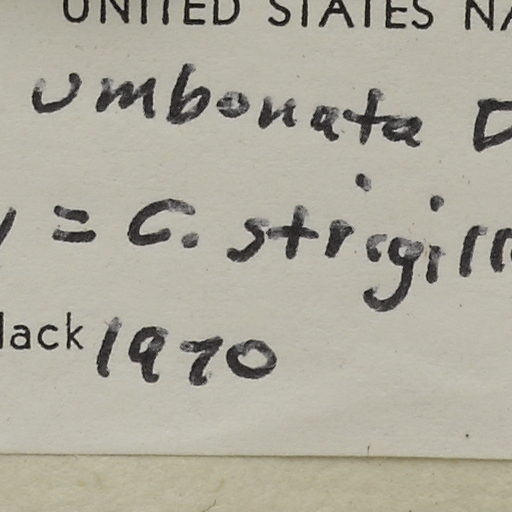 UNITED STATES NA
umbonata D
= C. strigill
lack 1970